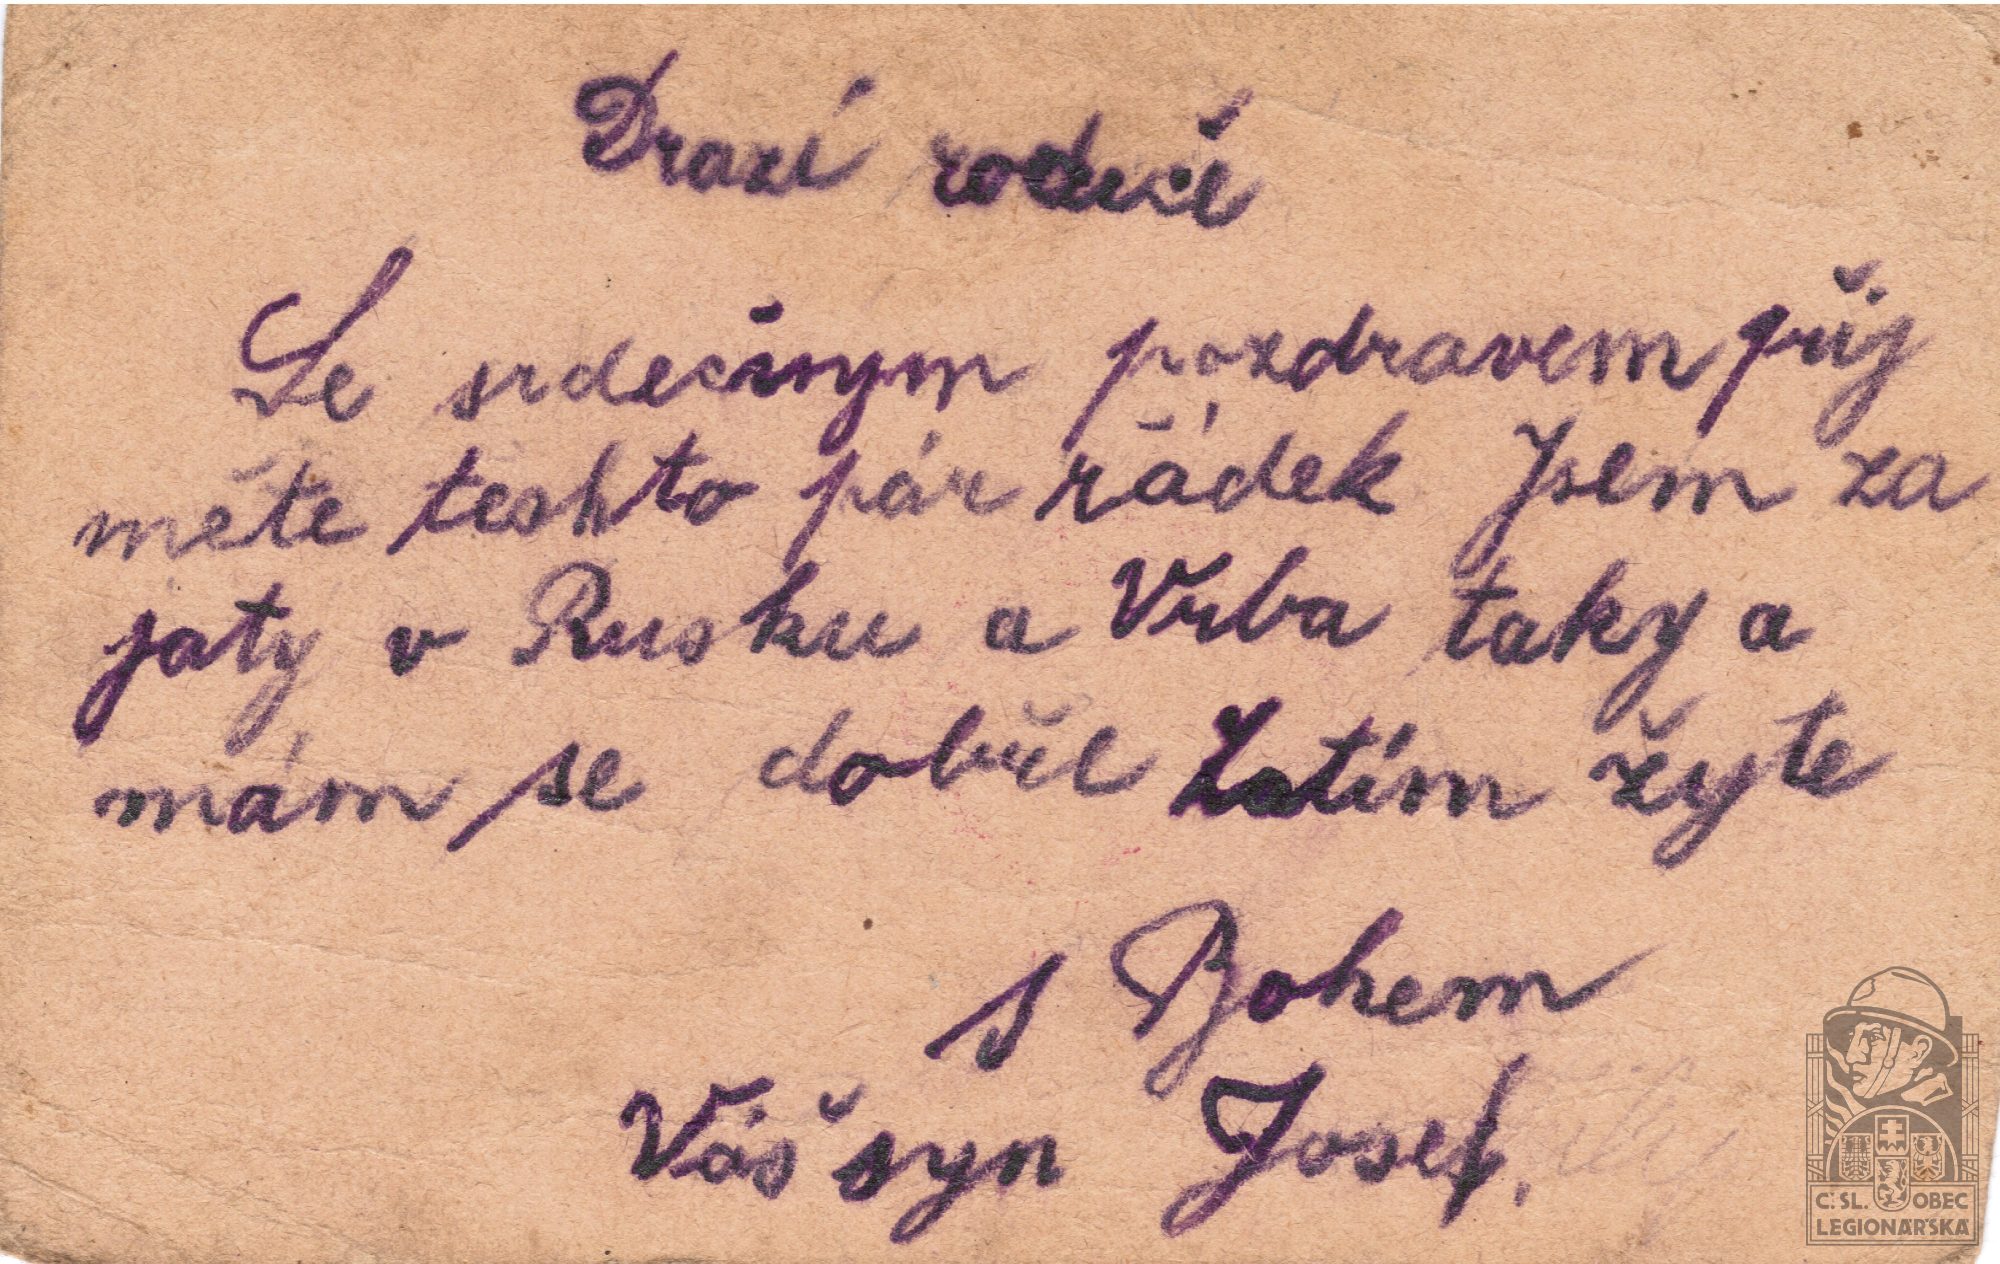 Drazí rodičé
Se srdečným pozdravem přij
měte teshto pár řádek Jsem za
jatý v Rusku a Vrba taky a
mám se dobřé Zatím žyte
s Bohem
Váš syn Josef.
Č. SL. OBEC
LEGIONÁŘSKÁ